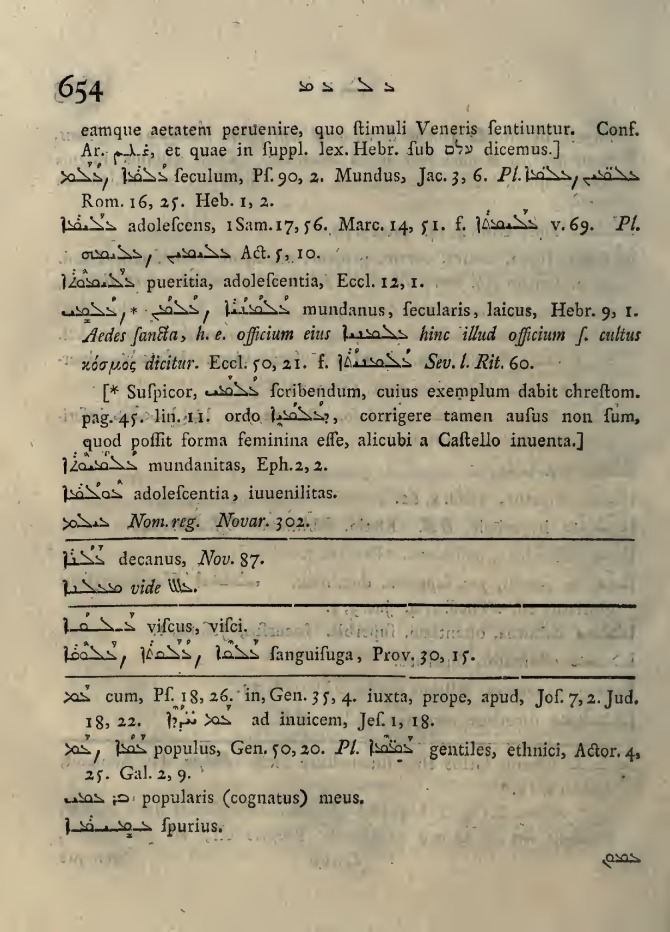 654 ܥ ܠ ܥ ܡ
eamque aetatem peruenire, quo ſtimuli Veneris ſentiuntur. Conf.
Ar. غلم, et quae in ſuppl. lex. Hebr. ſub עלם dicemus.]
ܥܠܡ, ܥܠܡܐ ſeculum, Pſ. 90, 2. Mundus, Jac. 3, 6. Pl. ܥܠܡܐ, ܥܠܡܝܢ
Rom. 16, 25. Heb. 1, 2.
ܥܠܝܡܐ adoleſcens, 1 Sam. 17, 56. Marc. 14, 51. f. ܥܠܝܡܬܐ v. 69. Pl.
Act. 5, 10.
ܥܠܝܡܘܬܐ pueritia, adoleſcentia, Eccl. 12, 1.
ܥܠܡܢܝܐ mundanus, ſecularis, laicus, Hebr. 9, 1.
Aedes ſancta, h. e. officium eius ܥܠܡܢܝܐ hinc illud officium ſ. cultus
κόσμος dicitur. Eccl. 50, 21. f. ܥܠܡܢܝܬܐ Sev. l. Rit. 60.
[* Suſpicor, ſcribendum, cuius exemplum dabit chreſtom.
pag. 45. lin. 11. ordo corrigere tamen auſus non ſum,
quod poſſit forma feminina eſſe, alicubi a Caſtello inuenta.]
ܥܠܡܝܘܬܐ mundanitas, Eph. 2, 2.
ܥܘܠܡܐ adoleſcentia, iuuenilitas.
ܥܝܠܡ Nom. reg. Novar. 302.
ܥܠܢܐ decanus, Nov. 87.
vide ܥܠܠ.
viſcus, viſci.
ſanguiſuga, Prov. 30, 15.
ܥܡ cum, Pſ. 18, 26. in, Gen. 35, 4. iuxta, prope, apud, Joſ. 7, 2. Jud.
18, 22. ܥܡ ܚܕܕܐ ad inuicem, Jeſ. 1, 18.
ܥܡ, ܥܡܐ populus, Gen. 50, 20. Pl. ܥܡܡܐ gentiles, ethnici, Actor. 4,
25. Gal. 2, 9.
ܒܪ ܥܡܝ popularis (cognatus) meus.
ſpurius.